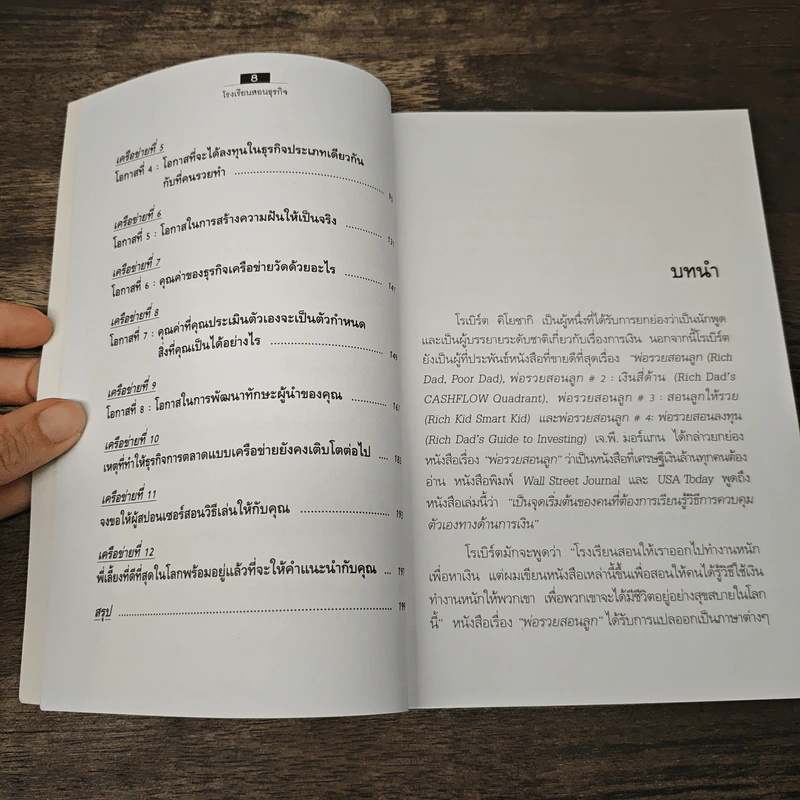 8
โรงเรียนสอนธุรกิจ
เครือข่ายที่ 5
โอกาสที่ 4 : โอกาสที่จะได้ลงทุนในธุรกิจประเภทเดียวกัน
กับที่คนรวยทำ
เครือข่ายที่ 6
โอกาสที่ 5 : โอกาสในการสร้างความฝันให้เป็นจริง
เครือข่ายที่ 7
โอกาสที่ 6 : คุณค่าของธุรกิจเครือข่ายวัดด้วยอะไร
เครือข่ายที่ 8
โอกาสที่ 7 : คุณค่าที่คุณประเมินตัวเองจะเป็นตัวกำหนด
สิ่งที่คุณเป็นได้อย่างไร 149
เครือข่ายที่ 9
โอกาสที่ 8 : โอกาสในการพัฒนาทักษะผู้นำของคุณ 167
เครือข่ายที่ 10
เหตุที่ทำให้ธุรกิจการตลาดแบบเครือข่ายยังคงเติบโตต่อไป 183
เครือข่ายที่ 11
จงขอให้ผู้สปอนเซอร์สอนวิธีเล่นให้กับคุณ 193
เครือข่ายที่ 12
พี่เลี้ยงที่ดีที่สุดในโลกพร้อมอยู่แล้วที่จะให้คำแนะนำกับคุณ 197
สรุป 199
บทนำ
โรเบิร์ต คิโยซากิ เป็นผู้หนึ่งที่ได้รับการยกย่องว่าเป็นนักพูด
และเป็นผู้บรรยายระดับชาติเกี่ยวกับเรื่องการเงิน นอกจากนี้โรเบิร์ต
ยังเป็นผู้ที่ประพันธ์หนังสือที่ขายดีที่สุดเรื่อง "พ่อรวยสอนลูก (Rich
Dad, Poor Dad), พ่อรวยสอนลูก # 2 : เงินสี่ด้าน (Rich Dad's
CASHFLOW Quadrant), พ่อรวยสอนลูก # 3 : สอนลูกให้รวย
(Rich Kid Smart Kid) และพ่อรวยสอนลูก # 4: พ่อรวยสอนลงทุน
(Rich Dad's Guide to Investing) เจ.พี. มอร์แกน ได้กล่าวยกย่อง
หนังสือเรื่อง "พ่อรวยสอนลูก" ว่าเป็นหนังสือที่เศรษฐีเงินล้านทุกคนต้อง
อ่าน หนังสือพิมพ์ Wall Street Journal และ USA Today พูดถึง
หนังสือเล่มนี้ว่า "เป็นจุดเริ่มต้นของคนที่ต้องการเรียนรู้วิธีการควบคุม
ตัวเองทางด้านการเงิน"
โรเบิร์ตมักจะพูดว่า "โรงเรียนสอนให้เราออกไปทำงานหนัก
เพื่อหาเงิน แต่ผมเขียนหนังสือเหล่านี้ขึ้นเพื่อสอนให้คนได้รู้วิธีใช้เงิน
ทำงานหนักให้พวกเขา เพื่อพวกเขาจะได้มีชีวิตอยู่อย่างสุขสบายในโลก
นี้" หนังสือเรื่อง "พ่อรวยสอนลูก" ได้รับการแปลออกเป็นภาษาต่างๆ